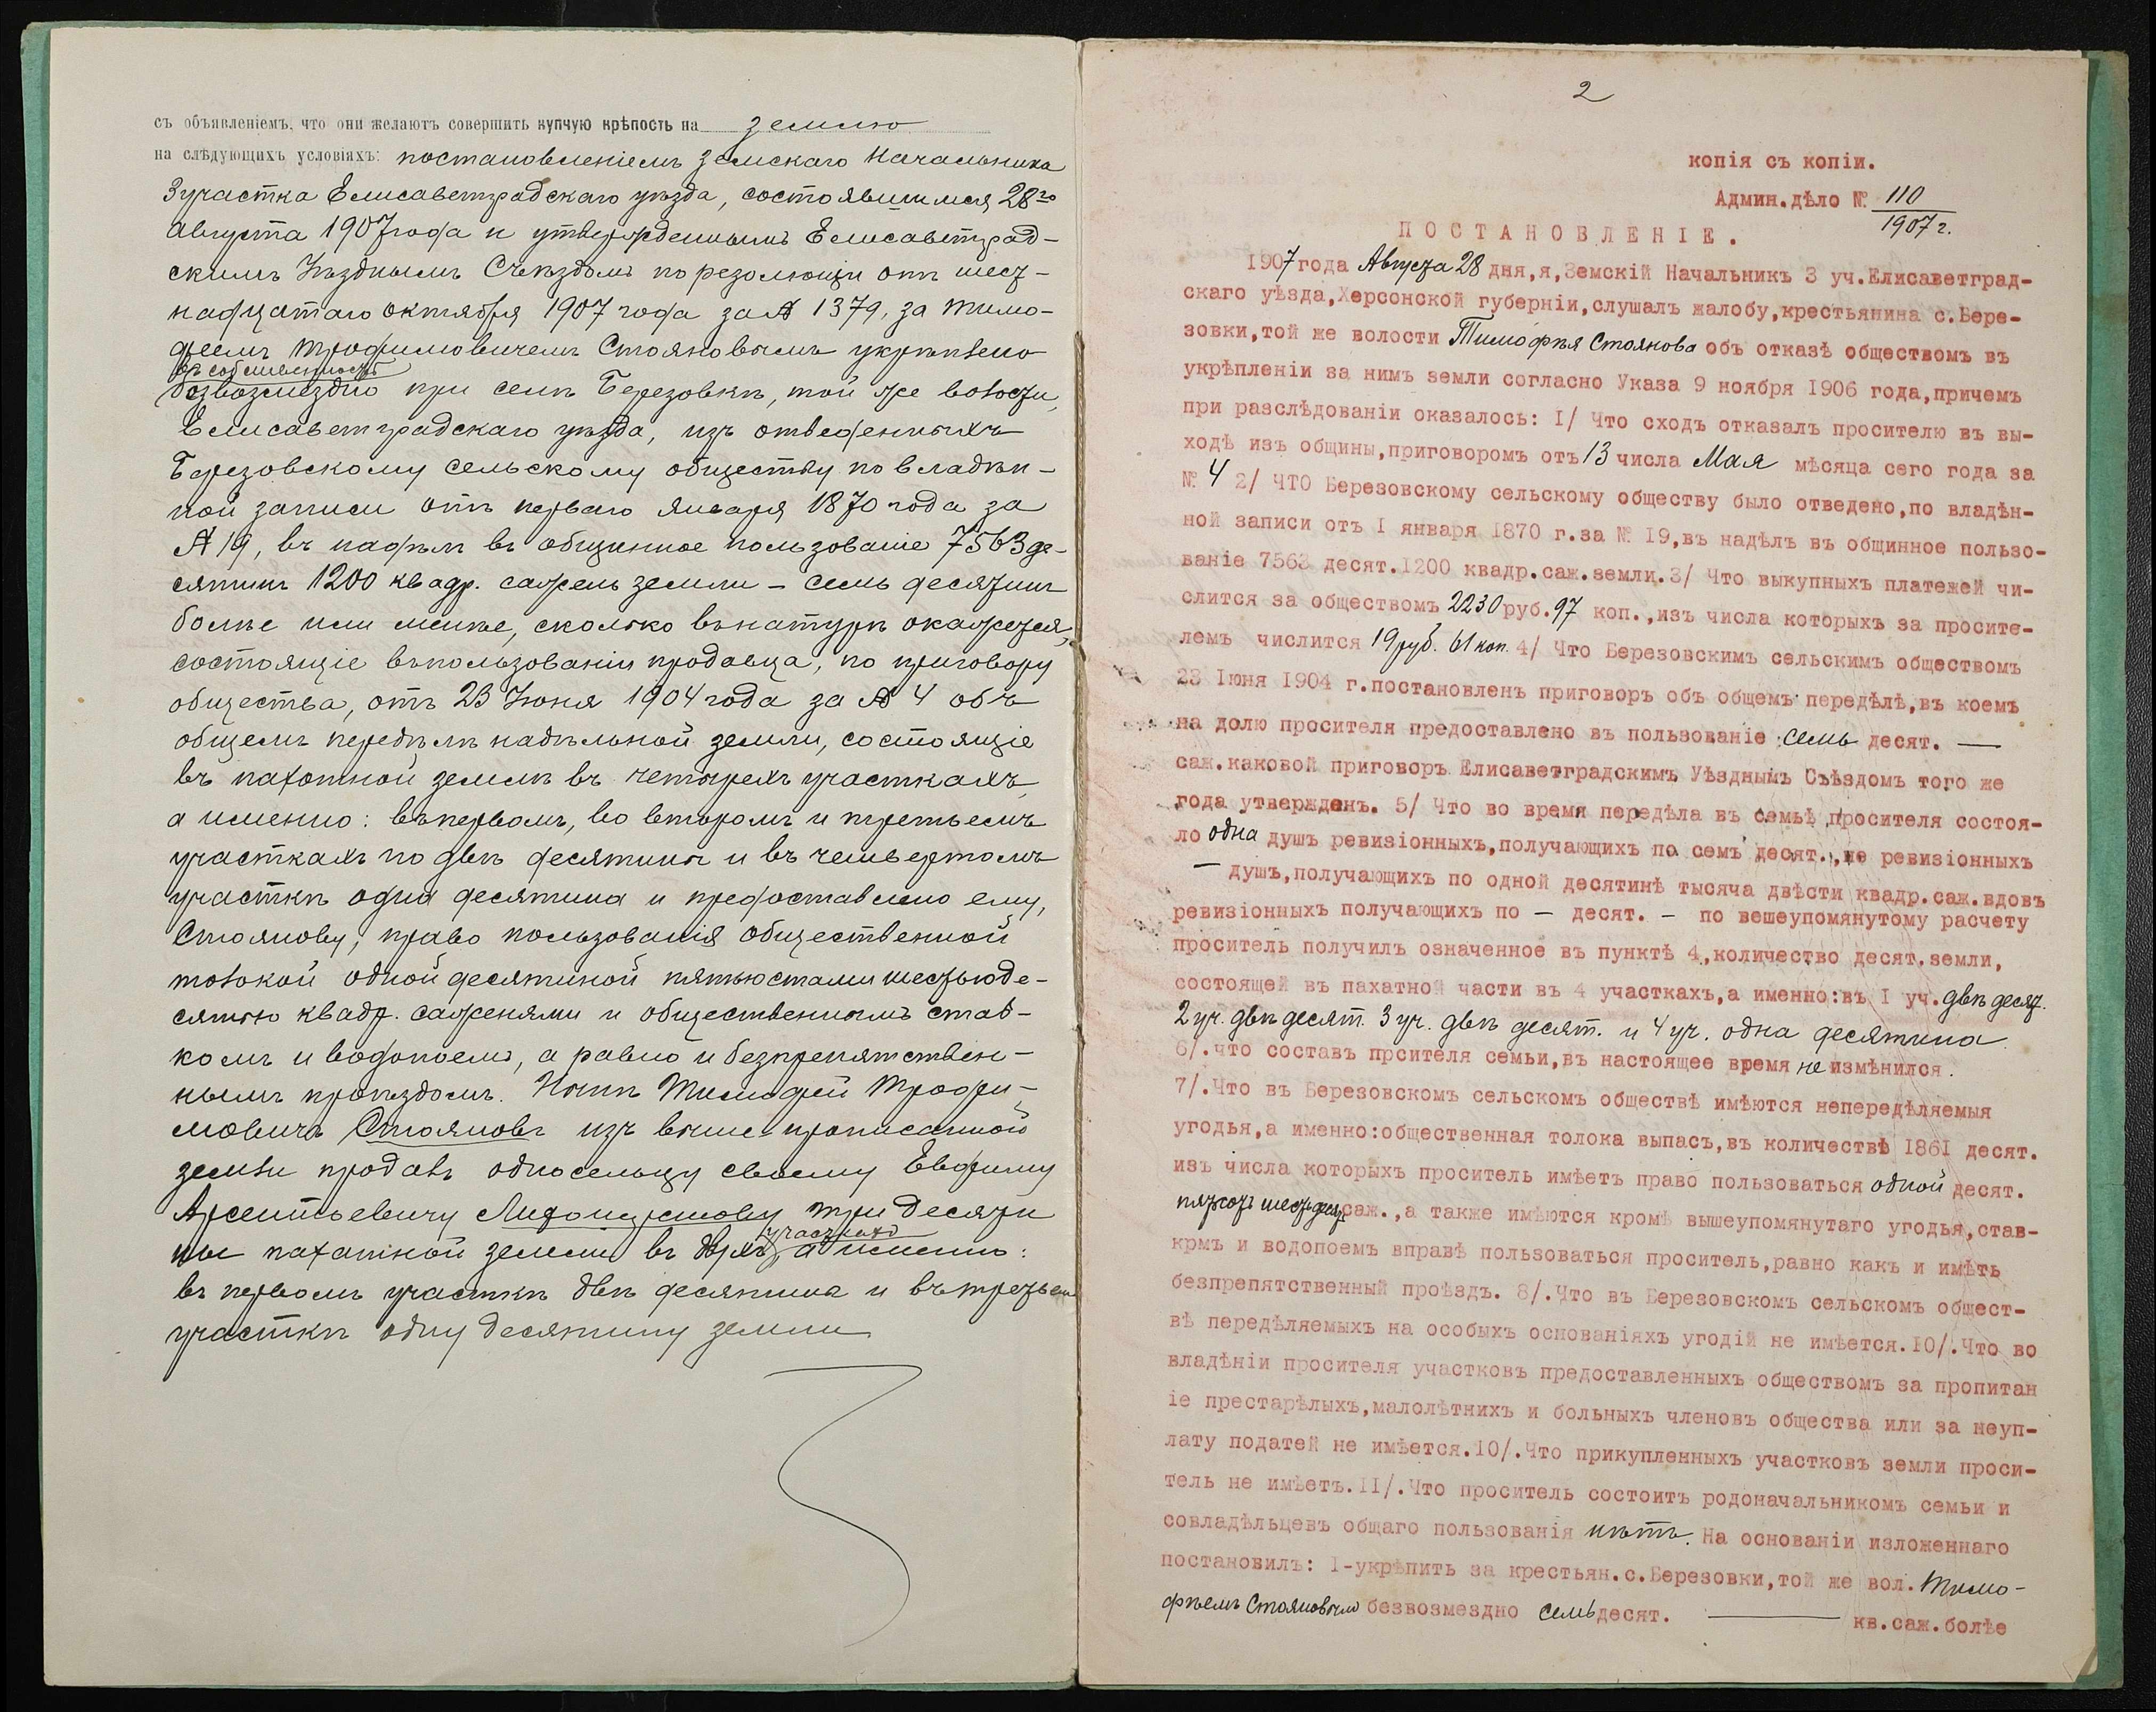 съ объявленіемъ, что они желаютъ совершить купчую крѣпость на землю
на слѣдующихъ условіяхъ: постановленіемъ Земскаго Начальника
3 участка Елисаветградскаго уѣзда, состоявшимся 28го
Августа 1907 года и утвержденнымъ Елисаветград-
скимъ Уѣзднымъ Съѣздомъ по резолюціи отъ шест-
надцатаго октября 1907 года за № 1379, за Тимо-
феемъ Трофимовичемъ Стояновымъ укрѣплено
въ собственность
безвозмездно при селѣ Березовкѣ, той же волости,
Елисаветградскаго уѣзда, изъ отведенныхъ
Березовскому сельскому обществу по владѣн-
ной записи отъ перваго января 1870 года за
№ 19, въ надѣлъ въ общинное пользованіе 7563 де-
сятинъ 1200 квадр. сажень земли - семь десятинъ
болѣе или менѣе, сколько въ натурѣ окажется,
состоящіе въ пользованіи продавца, по приговору
общества, отъ 23 Іюня 1904 года за № 4 объ
общемъ передѣлѣ надѣльной земли, состоящіе
въ пахотной землѣ въ четырехъ участкахъ,
а именно: въ первомъ, во второмъ и третьемъ
участкахъ по двѣ десятины и въ четвертомъ
участкѣ одна десятина и предоставлено ему,
Стоянову, право пользованія общественной
толокой одной десятиной пятьюстами шестьюде-
сятью квадр. саженями и общественнымъ став-
комъ и водопоемъ, а равно и безпрепятствен-
нымъ проѣздомъ. Нынѣ Тимофей Трофи-
мовичъ Стояновъ изъ выше прописанной
земли продалъ односельцу своему Евфиму
Арсентьевичу три десяти
участкахъ
ны пахатной земли въ двухъ, а именно:
въ первомъ участкѣ двѣ десятины и въ третьем
участкѣ одну десятину земли
2
копія съ копіи.
Админ.дѣло № 110
1907 г.
ПОСТАНОВЛЕНІЕ.
1907 года Августа 28 дня,я,Земскій Начальникъ 3 уч.Елисаветград-
скаго уѣзда,Херсонской губерніи,слушалъ жалобу,крестьянина с.Бере-
зовки,той же волости Тимофѣя Стоянова объ отказѣ обществомъ въ
укрѣпленіи за нимъ земли согласно Указа 9 ноября 1906 года,причемъ
при разслѣдованіи оказалось: I/ Что сходъ отказалъ просителю въ вы-
ходѣ изъ общины,приговоромъ отъ 13 числа Мая мѣсяца сего года за
№ 4 2/ ЧТО Березовскому сельскому обществу было отведено,по владѣн-
ной записи отъ I января 1870 г.за № 19,въ надѣлъ въ общинное пользо-
ваніе 7563 десят.1200 квадр.саж.земли.3/ Что выкупныхъ платежей чи-
слится за обществомъ 2230 руб.97 коп.,изъ числа которыхъ за просите-
лемъ числится 19 руб. 61 коп. 4/ Что Березовскимъ сельскимъ обществомъ
23 Іюня 1904 г.постановленъ приговоръ объ общемъ передѣлѣ,въ коемъ
на долю просителя предоставлено въ пользованіе семь десят. —
саж.каковой приговоръ Елисаветградскимъ Уѣзднымъ Съѣздомъ того же
года утвержденъ. 5/ Что во время передѣла въ семьѣ просителя состоя-
ло одна душъ ревизіонныхъ,получающихъ по семь десят.,не ревизіонныхъ
— душъ,получающихъ по одной десятинѣ тысяча двѣсти квадр.саж.вдовъ
ревизіонныхъ получающихъ по — десят. — по вешеупомянутому расчету
проситель получилъ означенное въ пунктѣ 4,количество десят.земли,
состоящей въ пахатной части въ 4 участкахъ,а именно:въ I уч. двѣ десят.
2 уч. двѣ десят. 3 уч. двѣ десят. и 4 уч. одна десятина
6/.что составъ прсителя семьи,въ настоящее время не измѣнился.
7/.Что въ Березовскомъ сельскомъ обществѣ имѣются непередѣляемыя
угодья,а именно:общественная толока выпасъ,въ количествѣ 1861 десят.
изъ числа которыхъ проситель имѣетъ право пользоваться одной десят.
пятсотъ шестьдесят саж.,а также имѣются кромѣ вышеупомянутаго угодья,став-
крмъ и водопоемъ вправѣ пользоваться проситель,равно какъ и имѣть
безпрепятственный проѣздъ. 8/.Что въ Березовскомъ сельскомъ общест-
вѣ передѣляемыхъ на особыхъ основаніяхъ угодій не имѣется.10/.Что во
владѣніи просителя участковъ предоставленныхъ обществомъ за пропитан
іе престарѣлыхъ,малолѣтнихъ и больныхъ членовъ общества или за неуп-
лату податей не имѣется.10/.Что прикупленныхъ участковъ земли проси-
тель не имѣетъ.II/.Что проситель состоитъ родоначальникомъ семьи и
совладѣльцевъ общаго пользованія нѣтъ. На основаніи изложеннаго
постановилъ: I-укрѣпить за крестьян.с.Березовки,той же вол. Тимо-
фѣемъ Стояновымъ безвозмездно семь десят. — кв.саж.болѣе